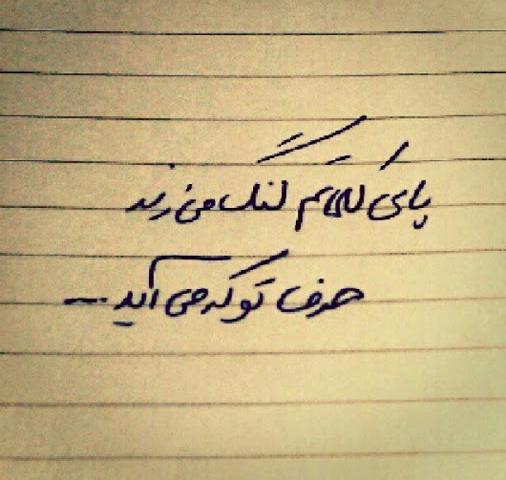 پای کلماتم لنگ می زند
حرف تو که می آید...